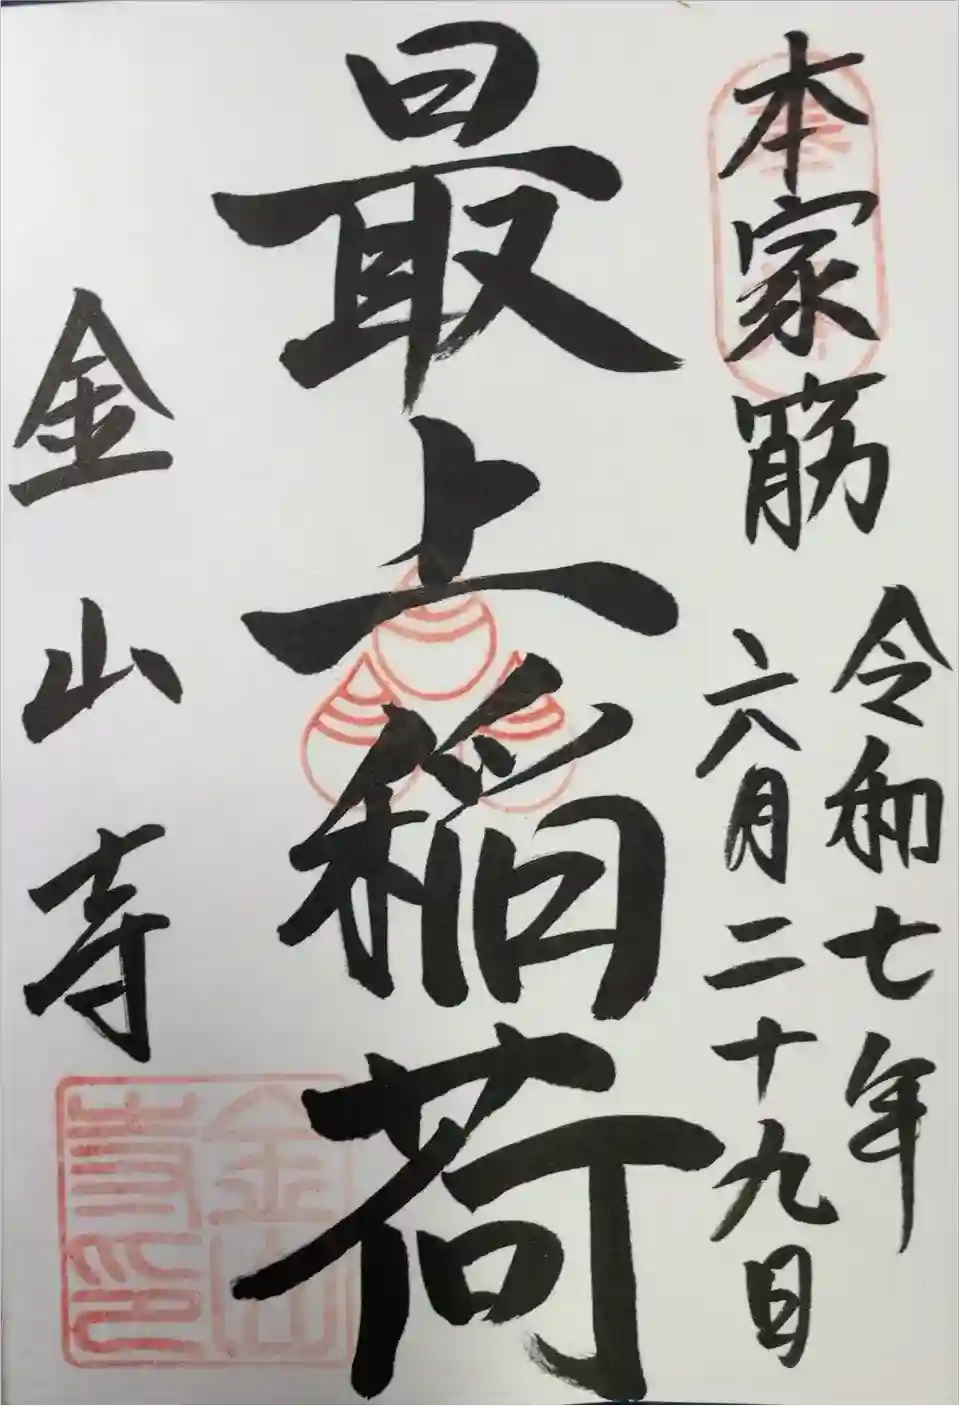 本家筋
令和七年
六月二十九日
最上稲荷
金山寺
金山
寺印